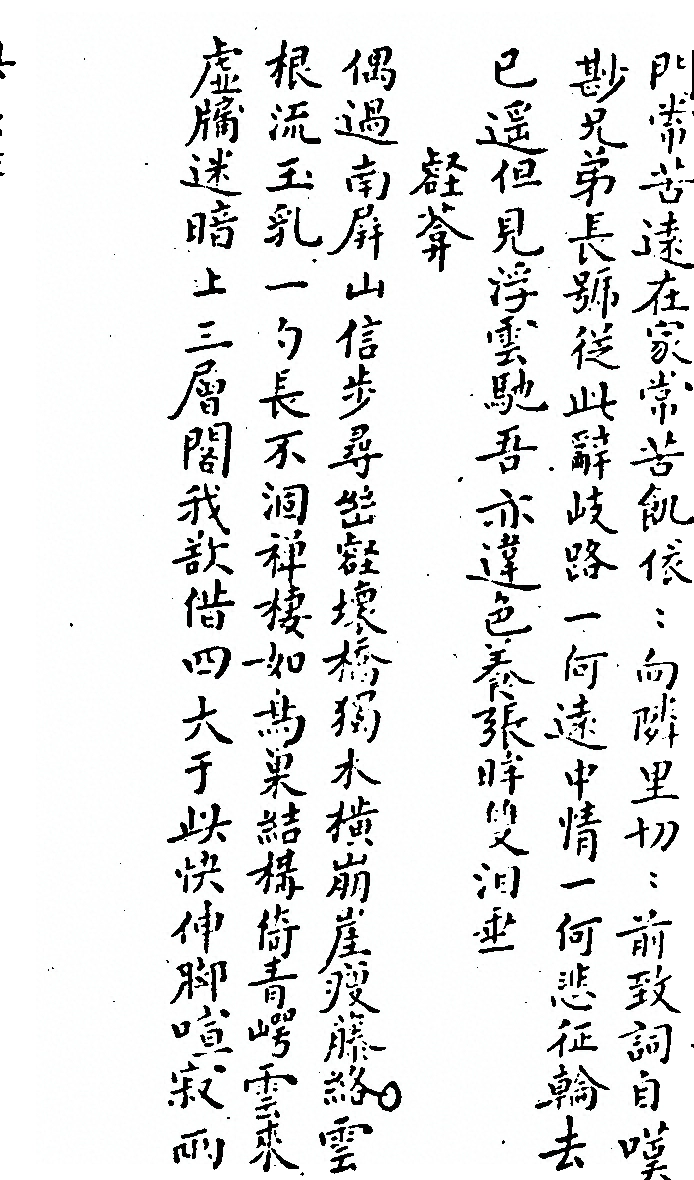 門常苦遠在家常苦飢依〻向隣里切〻前致詞自嘆
尠兄弟長號從此辭歧路一何遠中情一何悲征輪去
已遥但見浮雲馳吾亦違色養張眸雙泪垂
壑菴
偶過南屏山信步尋幽壑壞橋獨木橫崩崖瘦藤絡雲
根流玉乳一勺長不涸禅棲如鳥巢結構倚青崿雲來
虛牖迷暗上三層閣我欲借四大于此快伸脚喧寂兩